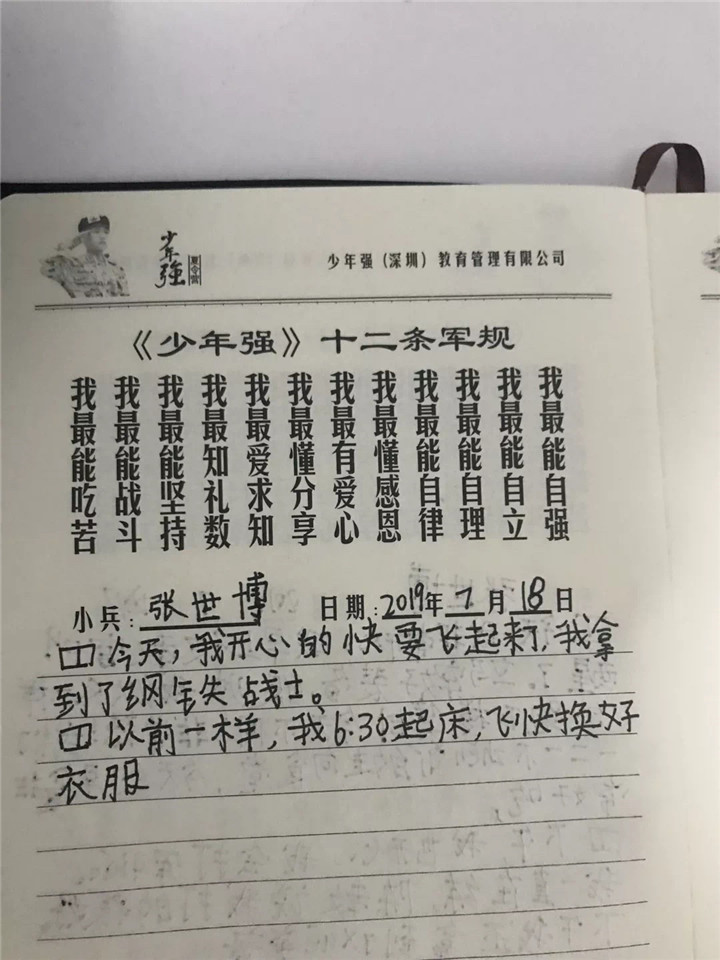 少年強
夏令营
少年强（深圳）教育管理有限公司
《少年强》十二条军规
我最能自强
我最能自立
我最能自理
我最能自律
我最懂感恩
我最有爱心
我最懂分享
我最爱求知
我最知礼数
我最能坚持
我最能战斗
我最能吃苦
小兵：张世博 日期：2019年7月18日
今天，我开心的快要飞起来了，我拿
到了纲铁战士。
以前一样，我6:30起床，飞快换好
衣服